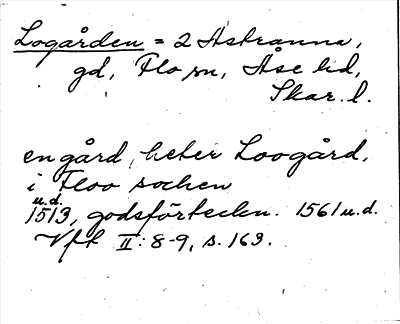 Logården = 2 Astranna,
gd, Flo sn, Åse hd,
Skar. l.
en gård, heter Loogård,
i Floo sochen
u.d.
1513, godsförteckn. 1561 u.d.
Vft II: 8-9, s. 163.